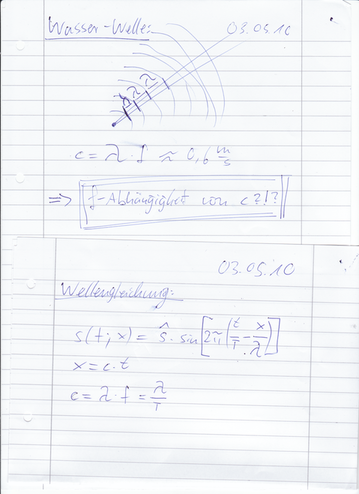 Wasser-Welle:
03.05.10
λ λ λ
c = λ · f ≈ 0,6 m/s
=> f-Abhängigkeit von c ?!?
03.05.10
Wellengleichung:
s(t; x) = ŝ · sin[2π(t/T - x/λ)]
x = c · t
c = λ · f = λ/T